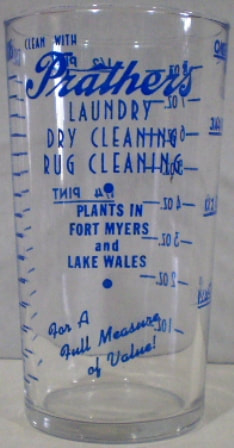 CLEAN WITH
Prather's
LAUNDRY
DRY CLEANING
RUG CLEANING
PLANTS IN
FORT MYERS
and
LAKE WALES
For A
Full Measure
of Value!
1/4 PINT
7 OZ.
4 OZ.
3 OZ.
2 OZ.
1 OZ.